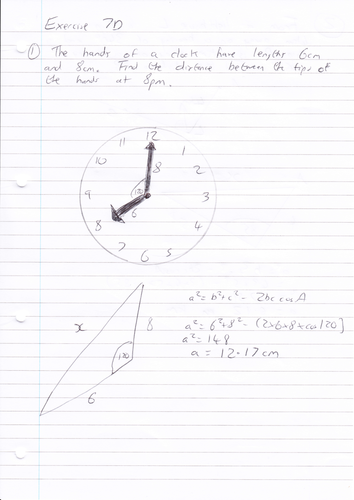 Exercise 7D
① The hands of a clock have lengths 6cm
and 8cm. Find the distance between the tips of
the hands at 8pm.
12
11
1
10
2
8
9
120
3
6
8
4
7
6
5
x
8
120
6
a² = b² + c² - 2bc cos A
a² = 6² + 8² - (2×6×8×cos 120)
a² = 148
a = 12.17cm